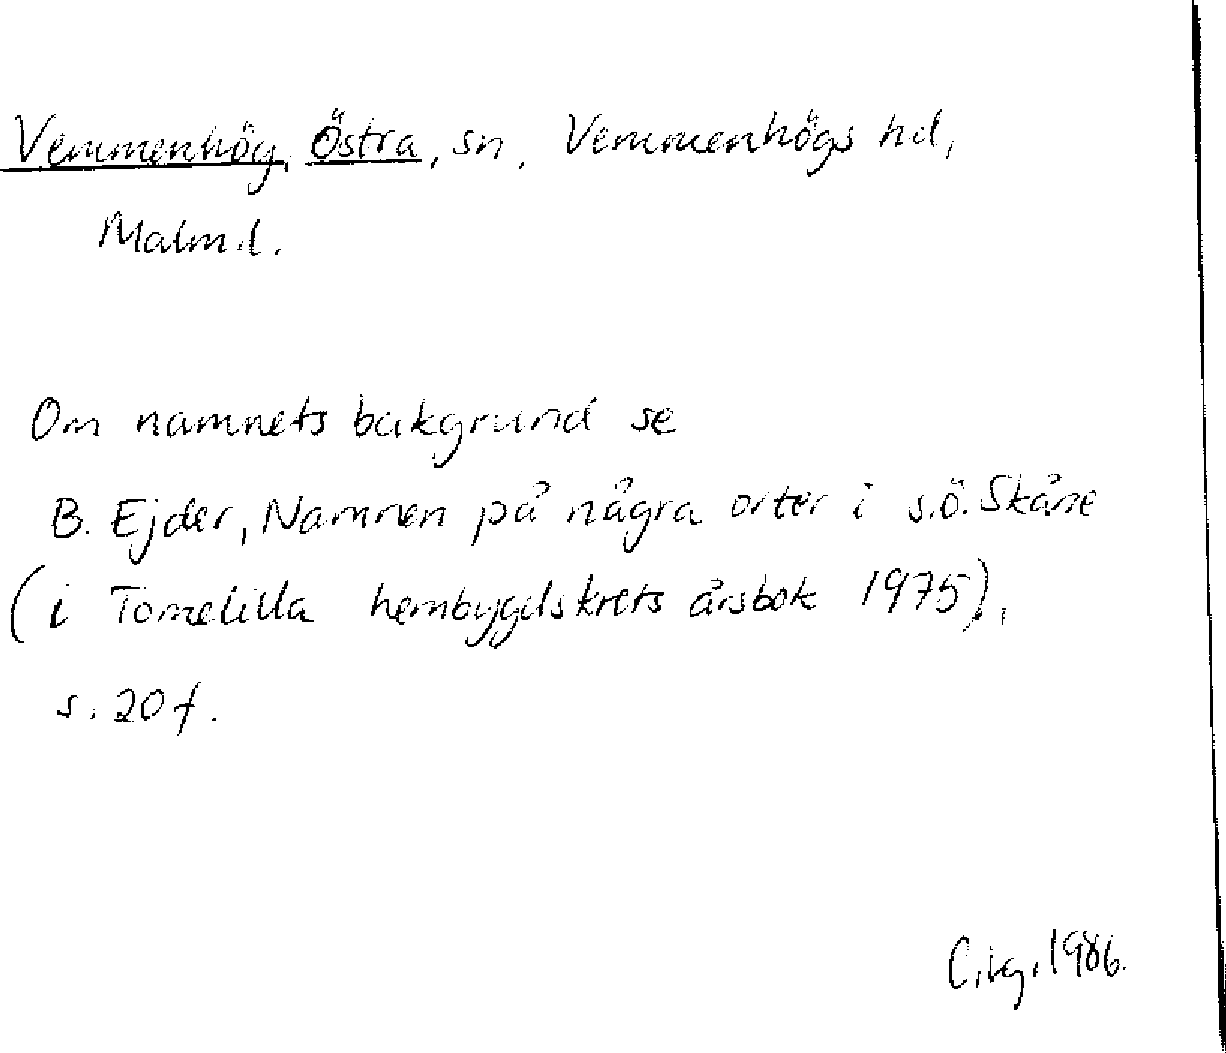 Vemmenhög, Östra, sn, Vemmenhögs hd,
Malm.l.
Om namnets bakgrund se
B. Ejder, Namnen på några orter i s.ö. Skåne
(i Tomelilla hembygdskrets årsbok 1975),
s. 20 f.
1986.